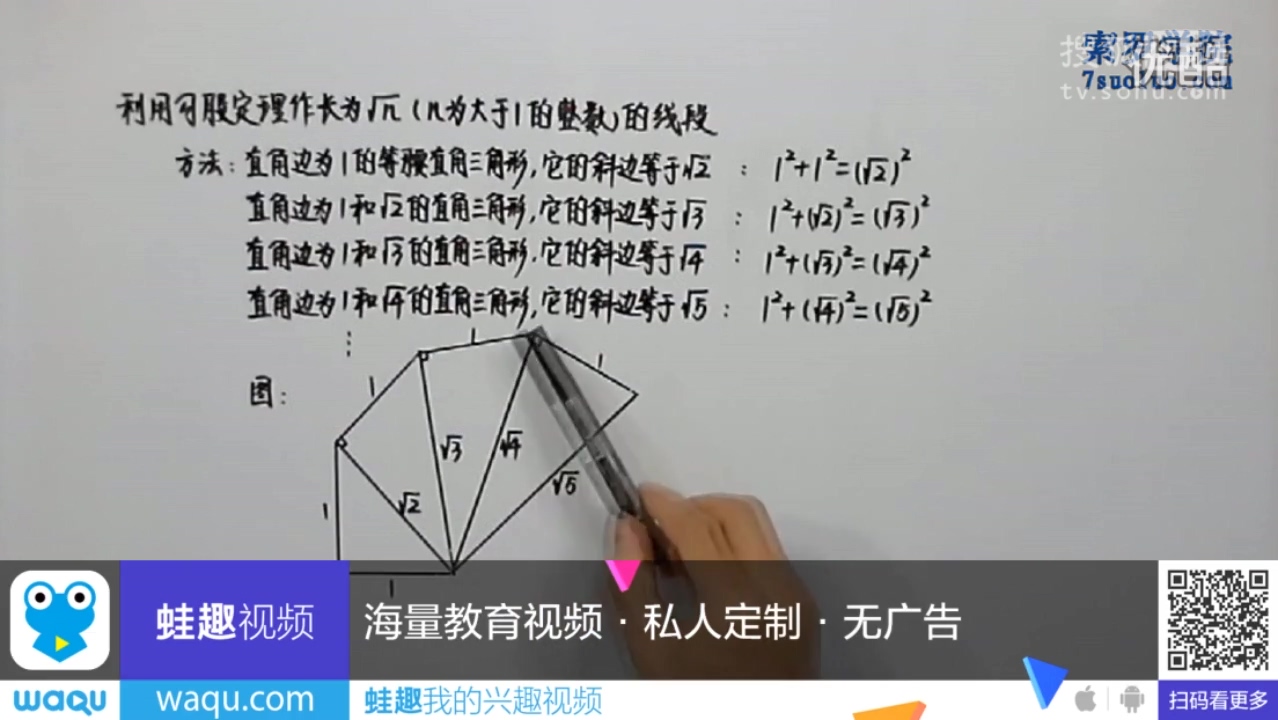 利用勾股定理作长为√n(n为大于1的整数)的线段
方法:直角边为1的等腰直角三角形,它的斜边等于√2 : 1²+1²=(√2)²
直角边为1和√2的直角三角形,它的斜边等于√3 : 1²+(√2)²=(√3)²
直角边为1和√3的直角三角形,它的斜边等于√4 : 1²+(√3)²=(√4)²
直角边为1和√4的直角三角形,它的斜边等于√5 : 1²+(√4)²=(√5)²
⋮
图:
1
1
1
1
1
√2
√3
√4
√5
优酷
tv.sohu.com
蛙趣视频
海量教育视频·私人定制·无广告
waqu
waqu.com
蛙趣我的兴趣视频
扫码看更多